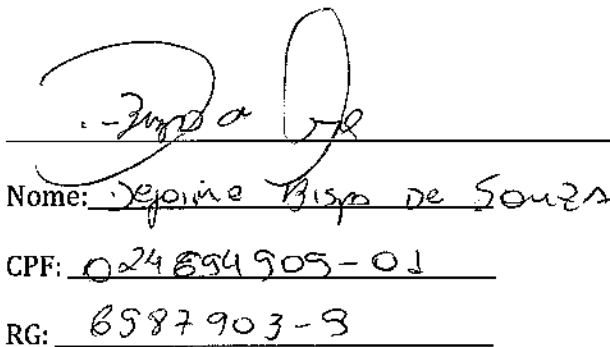 Nome: Dejoine Bispo De Souza
CPF: 024694909-01
RG: 6987903-9